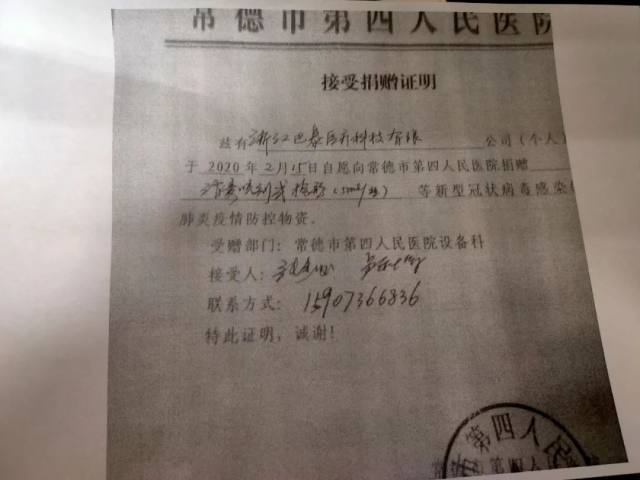 常德市第四人民医院
接受捐赠证明
兹有浙江巴泰医疗科技有限公司（个人）
于2020年2月15日自愿向常德市第四人民医院捐赠
等新型冠状病毒感染
肺炎疫情防控物资。
受赠部门：常德市第四人民医院设备科
接受人：
联系方式：15907366836
特此证明，诚谢！
第四人民
常德市第四人民